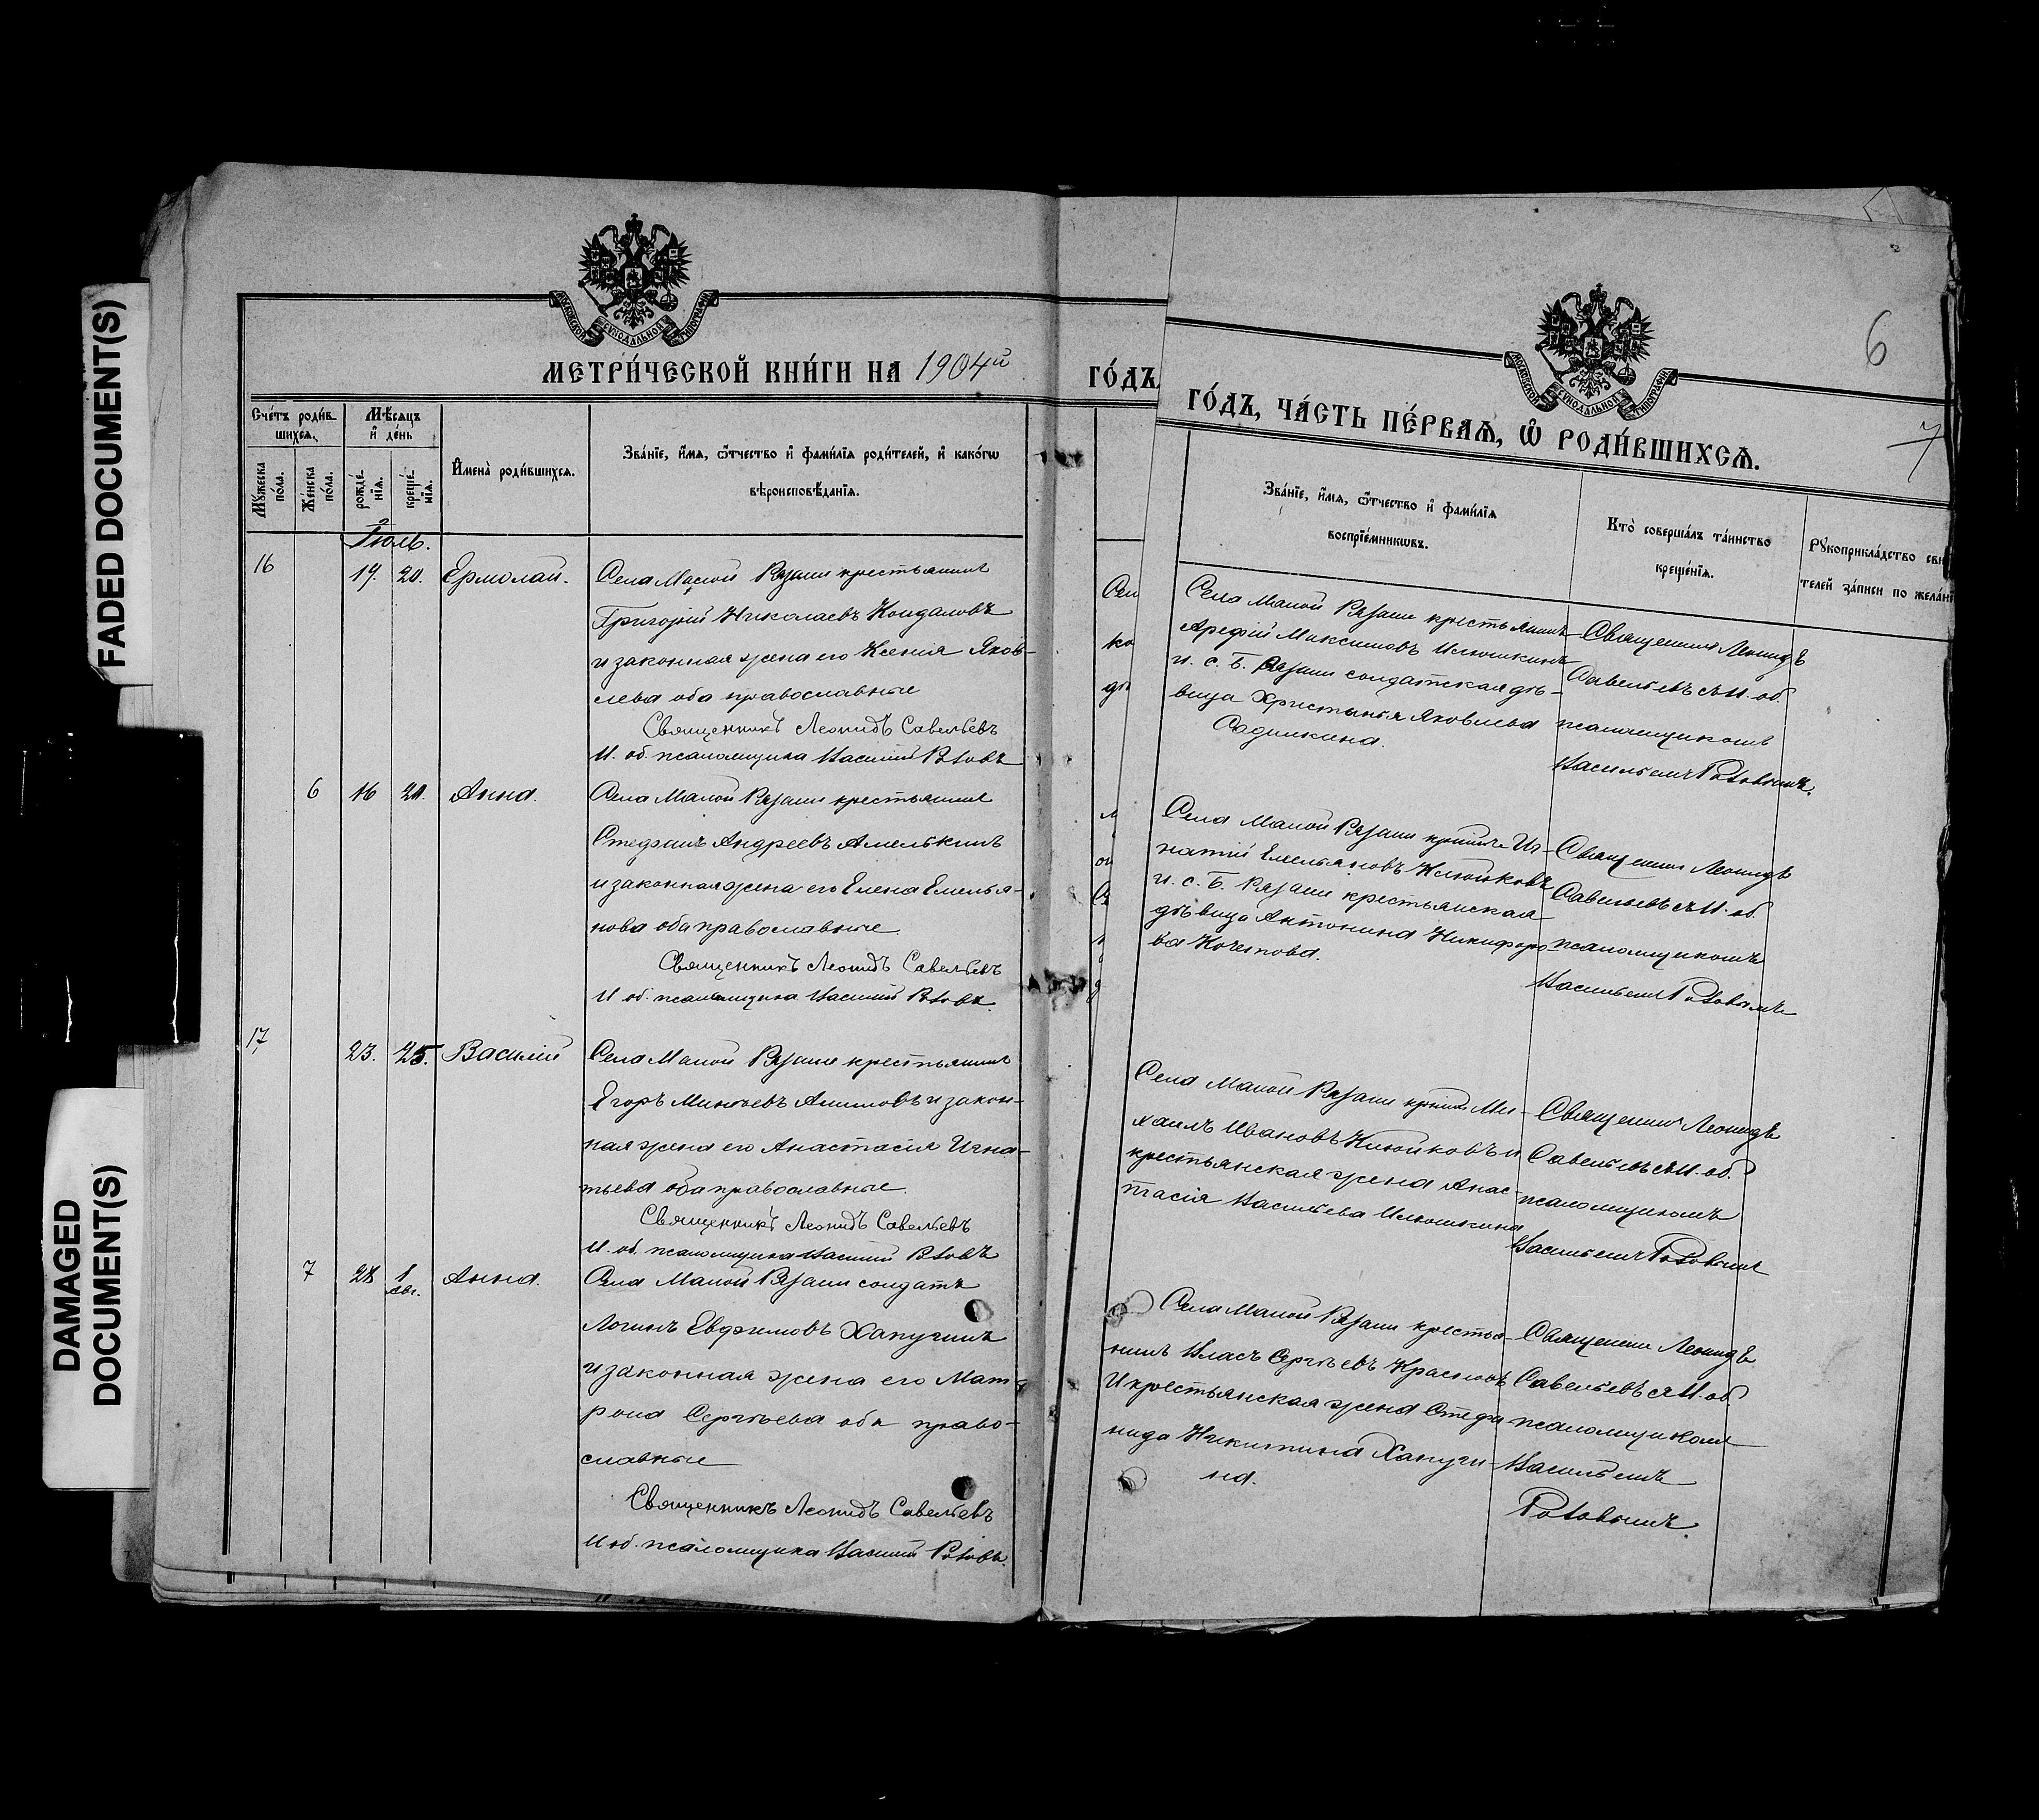 FADED DOCUMENT(S)
DAMAGED
DOCUMENT(S)
МОСКОВСКОЙ СѴНОДАЛЬНОЙ ТИПОГРАФІИ
МЕТРИ́ЧЕСКОЙ КНИ́ГИ НА 1904й
ГО́ДЪ
Сче́тъ роди́в-
шихся.
Мѣ́сяцъ
и҆ де́нь
Мꙋ́жеска
по́ла.
Же́нска
по́ла.
рожде́-
нїѧ.
креще́-
нїѧ.
И҆мена̀ роди́вшихся.
Зва́нїе, и҆́мѧ, ѻ҆́тчество и҆ фами́лїѧ роди́телей, и҆ како́гѡ
вѣроисповѣ́данїѧ.
Іюль.
16
19. 20. Ермолай.
Села Малой Рязани крестьянинъ
Григорій Николаевъ Кондаловъ
и законная жена его Ксенія Яков-
лева оба православные
Священникъ Леонидъ Савельевъ
И. об. псаломщика Василій Ротовъ
6 16 20. Анна.
Села Малой Рязани крестьянинъ
Стефанъ Андреевъ Амелькинъ
и законная жена его Елена Емелья-
нова оба православные.
Священникъ Леонидъ Савельевъ
И об. псаломщика Василій Ротовъ.
17
23. 25. Василій
Села Малой Рязани крестьянинъ
Егоръ Минѣевъ и закон-
ная жена его Анастасія Игна-
тьева оба православные.
Священникъ Леонидъ Савельевъ
И. об. псаломщика Василій Ротовъ
7 28 1 авг. Анна.
Села Малой Рязани солдатъ
Логинъ Евфимовъ Хапугинъ
и законная жена его Мат-
рона Сергѣева оба право-
славные
Священникъ Леонидъ Савельевъ
И об. псаломщика Василій Ротовъ.
6
7
МОСКОВСКОЙ СѴНОДАЛЬНОЙ ТИПОГРАФІИ
ГО́ДЪ, ЧА́СТЬ ПЕ́РВАѦ, Ѡ҆ РОДИ́ВШИХСѦ.
Зва́нїе, и҆́мѧ, ѻ҆́тчество и҆ фами́лїѧ
воспрїе́мникѡвъ.
Кто̀ соверша́лъ та́инство
креще́нїѧ.
Рꙋкоприкла́дство сви
телей за́писи по жела́нї
Села Малой Рязани крестьянинъ
Арефій Максимовъ Илюшкинъ
и с. Б. Рязани солдатская дѣ-
вица Христинья Яковлева
Садилкина.
Священникъ Леонидъ
Савельевъ съ И. об.
псаломщикомъ
Васильемъ Ротовымъ.
Села Малой Рязани Иг-
натій Емельяновъ Клюйковъ
и с. Б. Рязани крестьянская
дѣвица Антонина Никифоро-
ва Кочетова.
Священникъ Леонидъ
Савельевъ съ И. об.
псаломщикомъ
Васильемъ Ротовымъ
Села Малой Рязани Ми-
хаилъ Ивановъ Клюйковъ и
крестьянская жена Анас-
тасія Васильева Илюшкина
Священникъ Леонидъ
Савельевъ съ И. об.
псаломщикомъ
Васильемъ Ротовымъ
Села Малой Рязани крестья-
нинъ Власъ Сергѣевъ Красновъ
И крестьянская жена Стефа-
нида Никитина Хапуги-
на.
Священникъ Леонидъ
Савельевъ съ И. об.
псаломщикомъ
Васильемъ
Ротовымъ.